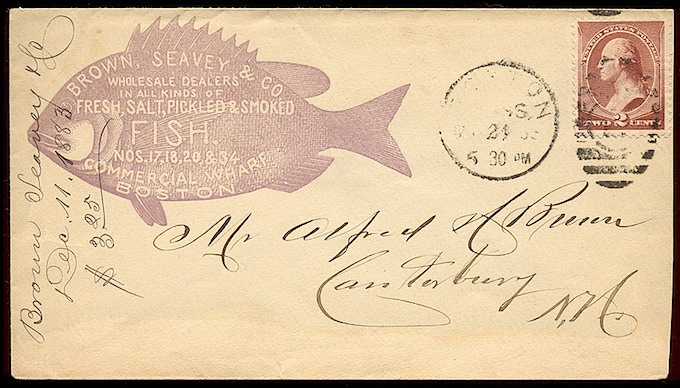 BROWN, SEAVEY & CO.
WHOLESALE DEALERS
IN ALL KINDS OF
FRESH, SALT, PICKLED & SMOKED
FISH.
NOS. 17, 18, 20 & 34
COMMERCIAL WHARF
BOSTON
Brown Seavey & Co
Dec. 11. 1883
$ 3.25
BOSTON
MASS.
24
5 30 PM
UNITED STATES POSTAGE
TWO 2 CENTS
Mr Alfred H Brown
Canterbury
N.H.